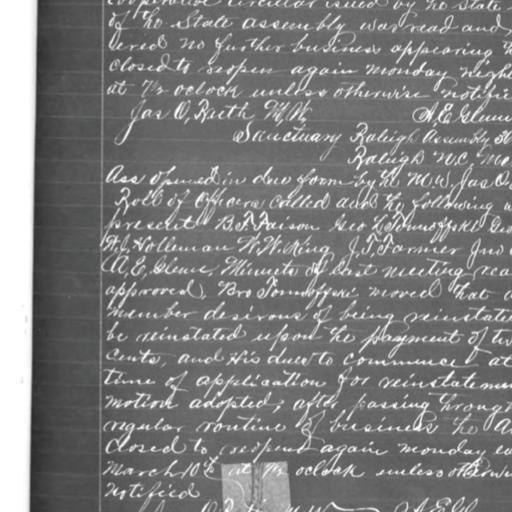 cooperative circular issued by the State
of the State assembly was read and
ered no further business appearing
closed to reopen again monday night
at 7½ oclock unless otherwise notifie
Jas O, Reith M. W. A, E, Glenn
Sanctuary Raleigh Assembly
Raleigh N.C, Mo
Ass opened in due form by the M.W. Jas O
Roll of Officers called and the following w
present B. F. Faison Geo L Tonnoffski Geo
W. J, Holleman W. W. King J, T, Farmer Jno
A, E, Glenn, Minuets of last meeting rea
approved, Bro Tonnoffski moved that a
member desirous of being reinstate
be reinstated upon the payment of tw
cents, and His dues to commence at
time of application for reinstatemen
motion adopted, after passing through
regular routine of business the A
closed to reopen again monday ev
March 10th at 7½ oclock unless otherwi
notified